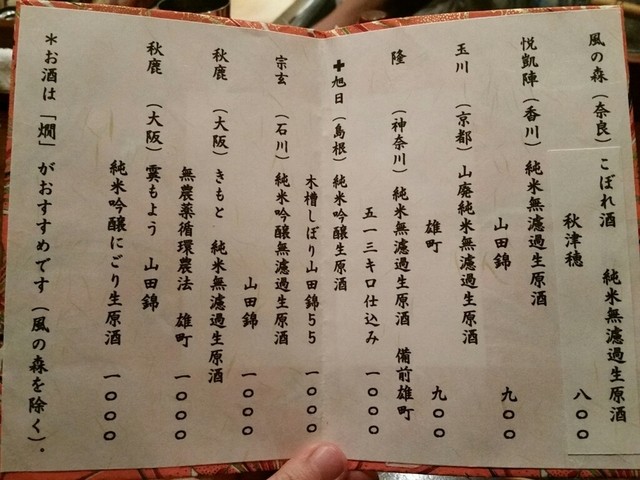 風の森（奈良）こぼれ酒　純米無濾過生原酒
秋津穂　八〇〇
悦凱陣（香川）純米無濾過生原酒
山田錦　九〇〇
玉川　（京都）山廃純米無濾過生原酒
雄町　九〇〇
隆　（神奈川）純米無濾過生原酒　備前雄町
五一三キロ仕込み　一〇〇〇
✚旭日（島根）純米吟醸生原酒
木槽しぼり山田錦５５　一〇〇〇
宗玄　（石川）純米吟醸無濾過生原酒
山田錦　一〇〇〇
秋鹿　（大阪）きもと　純米無濾過生原酒
無農薬循環農法　雄町　一〇〇〇
秋鹿　（大阪）霙もよう　山田錦
純米吟醸にごり生原酒　一〇〇〇
＊お酒は「燗」がおすすめです（風の森を除く）．